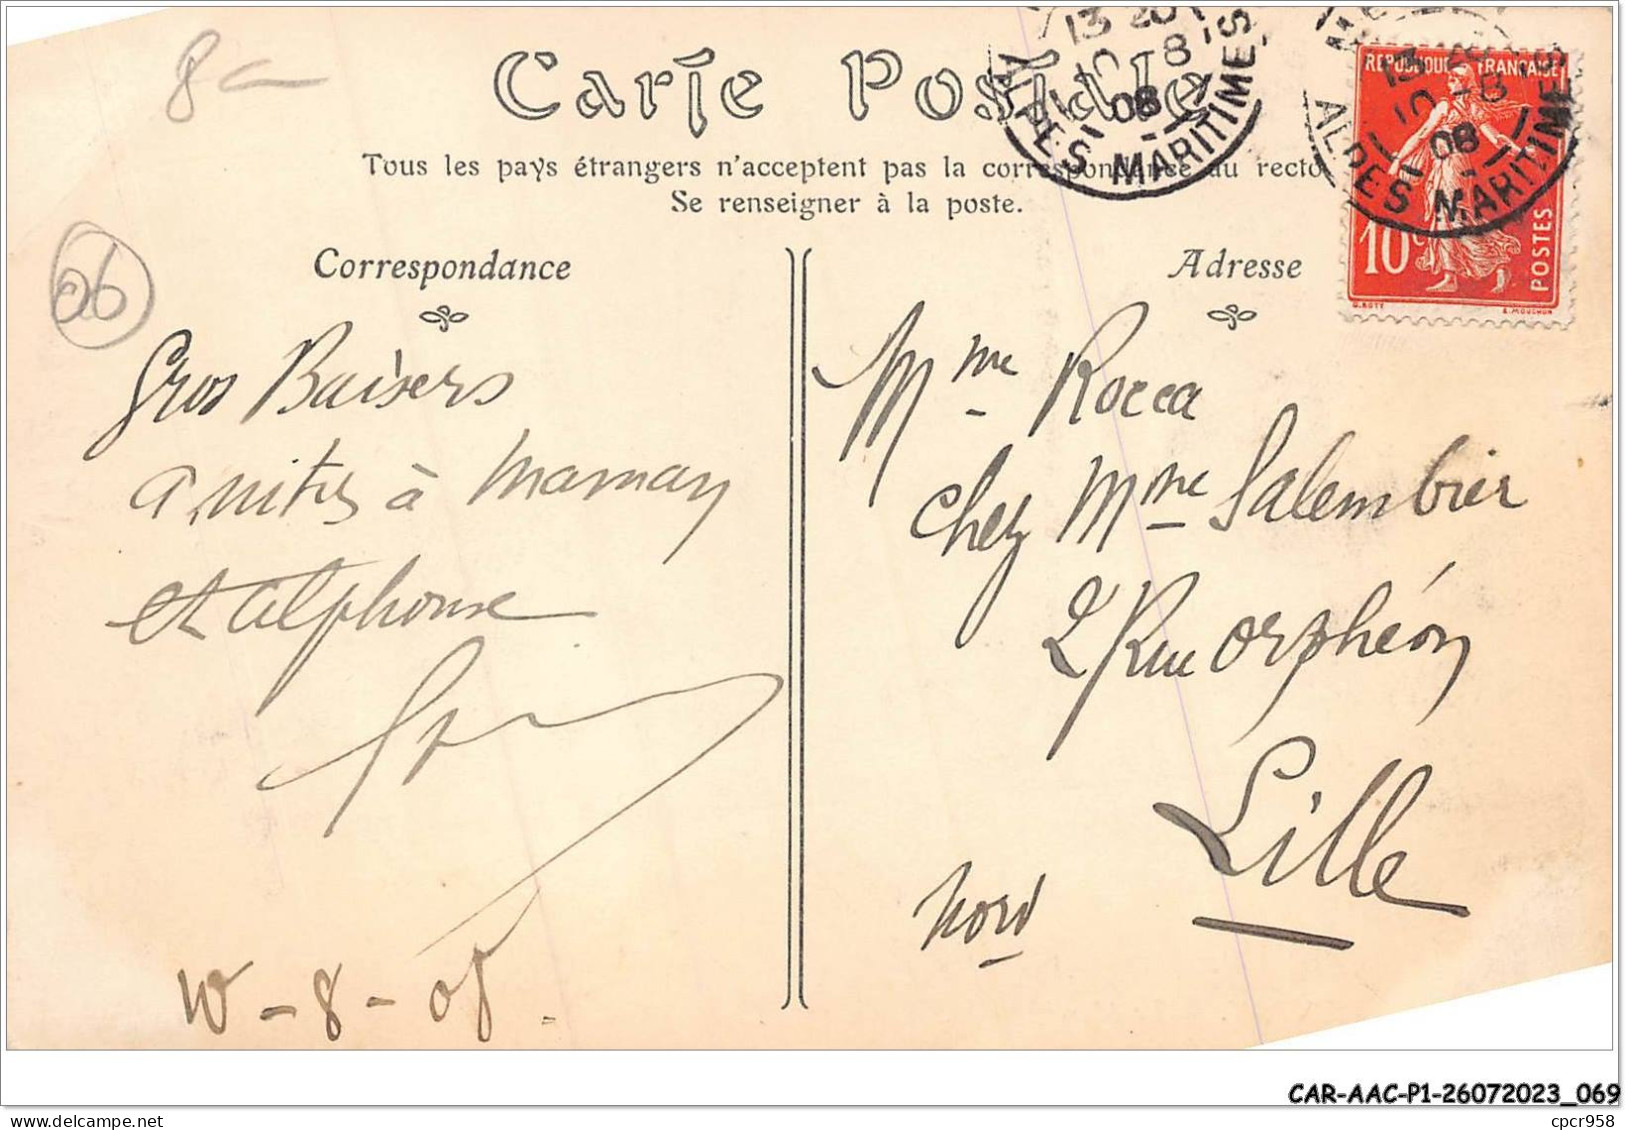 8
06
Carte Postale
Tous les pays étrangers n'acceptent pas la correspondance au recto
Se renseigner à la poste.
13 20
10 -8
08
ALPES MARITIMES
REPUBLIQUE FRANÇAISE
13 20
10 -8
08
ALPES MARITIMES
10c
POSTES
O. ROTY
E. MOUCHON
Correspondance
Gros Baisers
amitiés à Maman
et alphonse
10 - 8 - 08.
Adresse
Mme Rocca
chez Mme Salembier
2 Rue Orphéon
Lille
Nord
CAR-AAC-P1-26072023_069
cpcr958